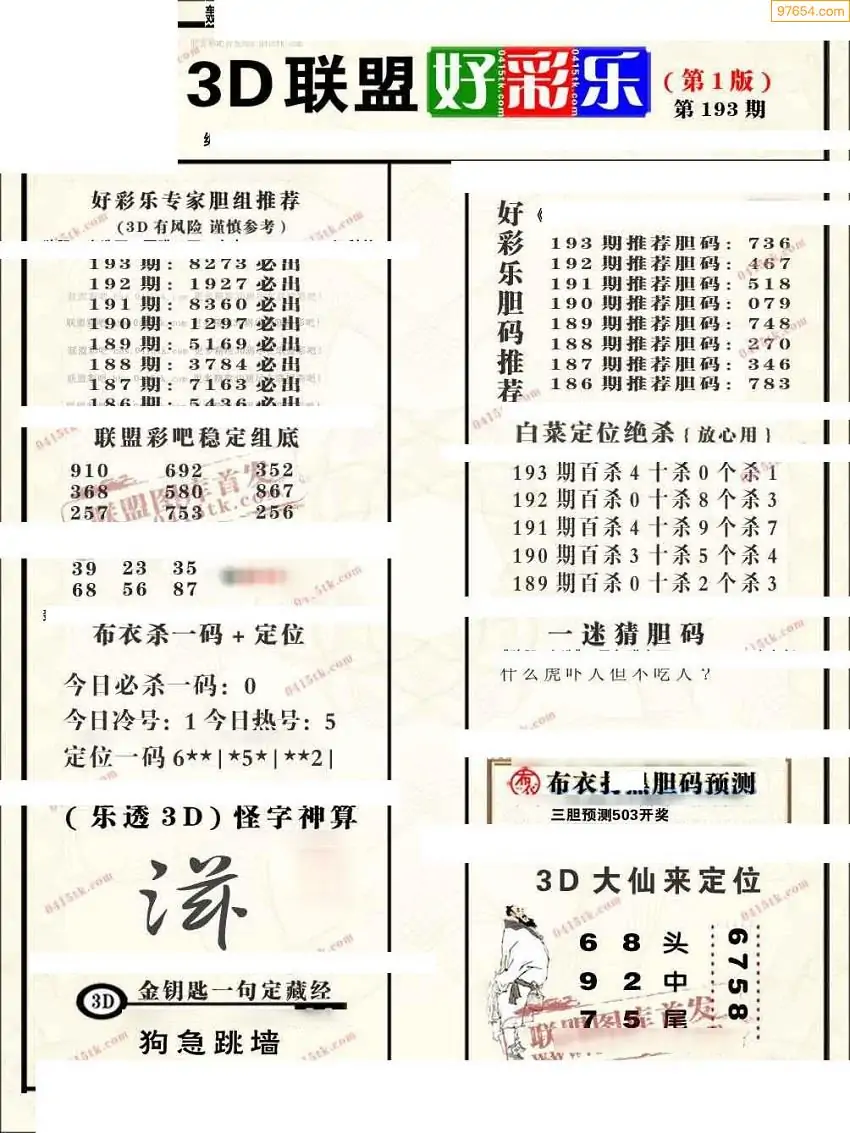 97654.com
3D联盟好彩乐(第1版)
第193期
好彩乐专家胆组推荐
(3D有风险 谨慎参考)
193期：8273必出
192期：1927必出
191期：8360必出
190期：1297必出
189期：5169必出
188期：3784必出
187期：7163必出
186期：5436必出
联盟彩吧稳定组底
910 692 352
368 580 867
257 753 256
39 23 35
68 56 87
布衣杀一码+定位
今日必杀一码：0
今日冷号：1 今日热号：5
定位一码 6**|*5*|**2|
(乐透3D)怪字神算
滋
3D 金钥匙一句定藏经
狗急跳墙
好彩乐胆码推荐
193期推荐胆码：736
192期推荐胆码：467
191期推荐胆码：518
190期推荐胆码：079
189期推荐胆码：748
188期推荐胆码：270
187期推荐胆码：346
186期推荐胆码：783
白菜定位绝杀{放心用}
193期百杀4十杀0个杀1
192期百杀0十杀8个杀3
191期百杀4十杀9个杀7
190期百杀3十杀5个杀4
189期百杀0十杀2个杀3
一迷猜胆码
什么虎吓人但不吃人？
布衣 胆码预测
三胆预测503开奖
3D大仙来定位
6 8 头
9 2 中
7 5 尾
6758
联盟图库首发
0415tk.com